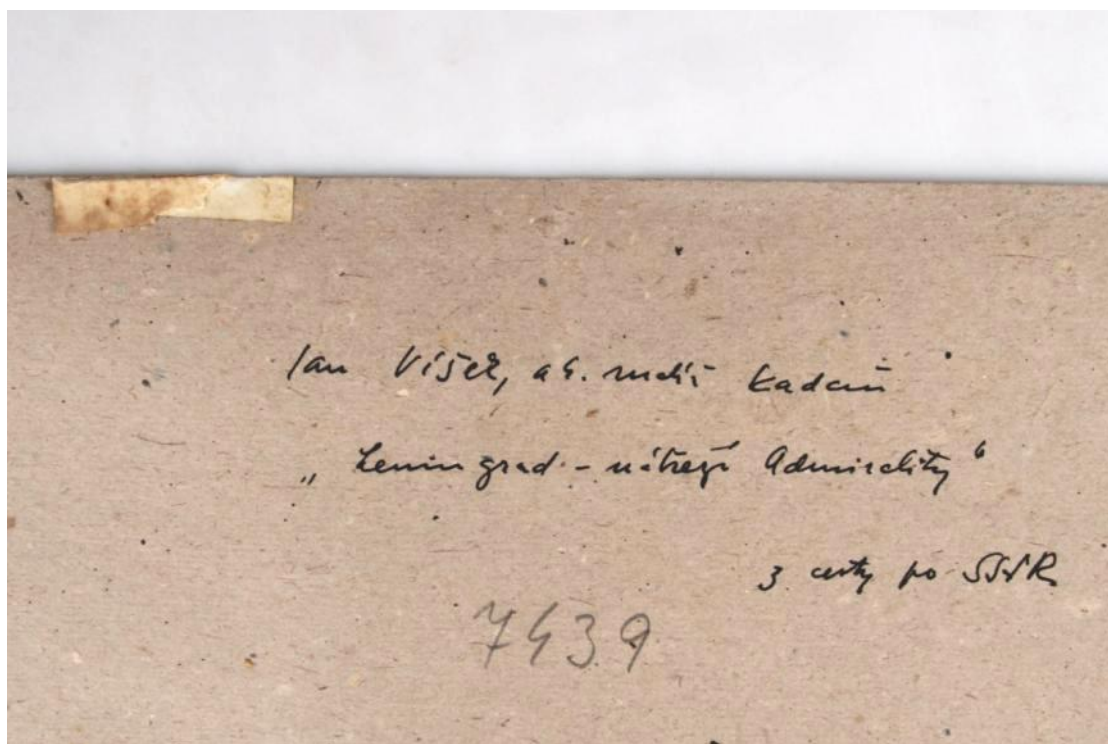 Jan Víšek, ak. malíř Kadaň
„Leningrad - nábřeží Admirality“
z cesty po SSSR
7439